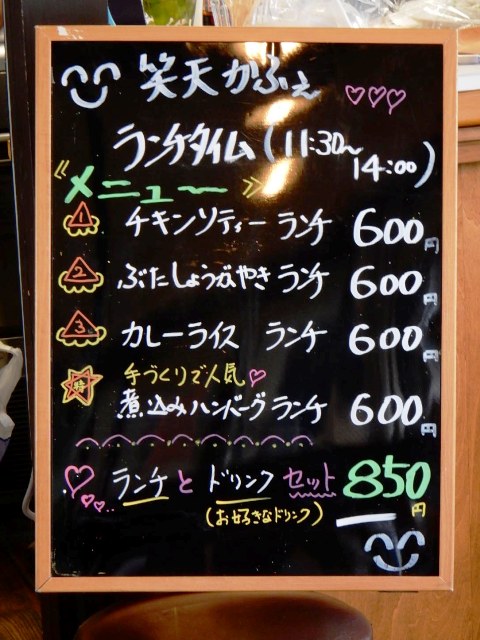 笑天かふぇ
ランチタイム(11:30〜
14:00)
《メニュー》
1 チキンソティーランチ 600円
2 ぶたしょうがやきランチ 600円
3 カレーライス ランチ 600円
手づくりで人気
特 煮込みハンバーグランチ 600円
ランチとドリンクセット 850円
(お好きなドリンク)